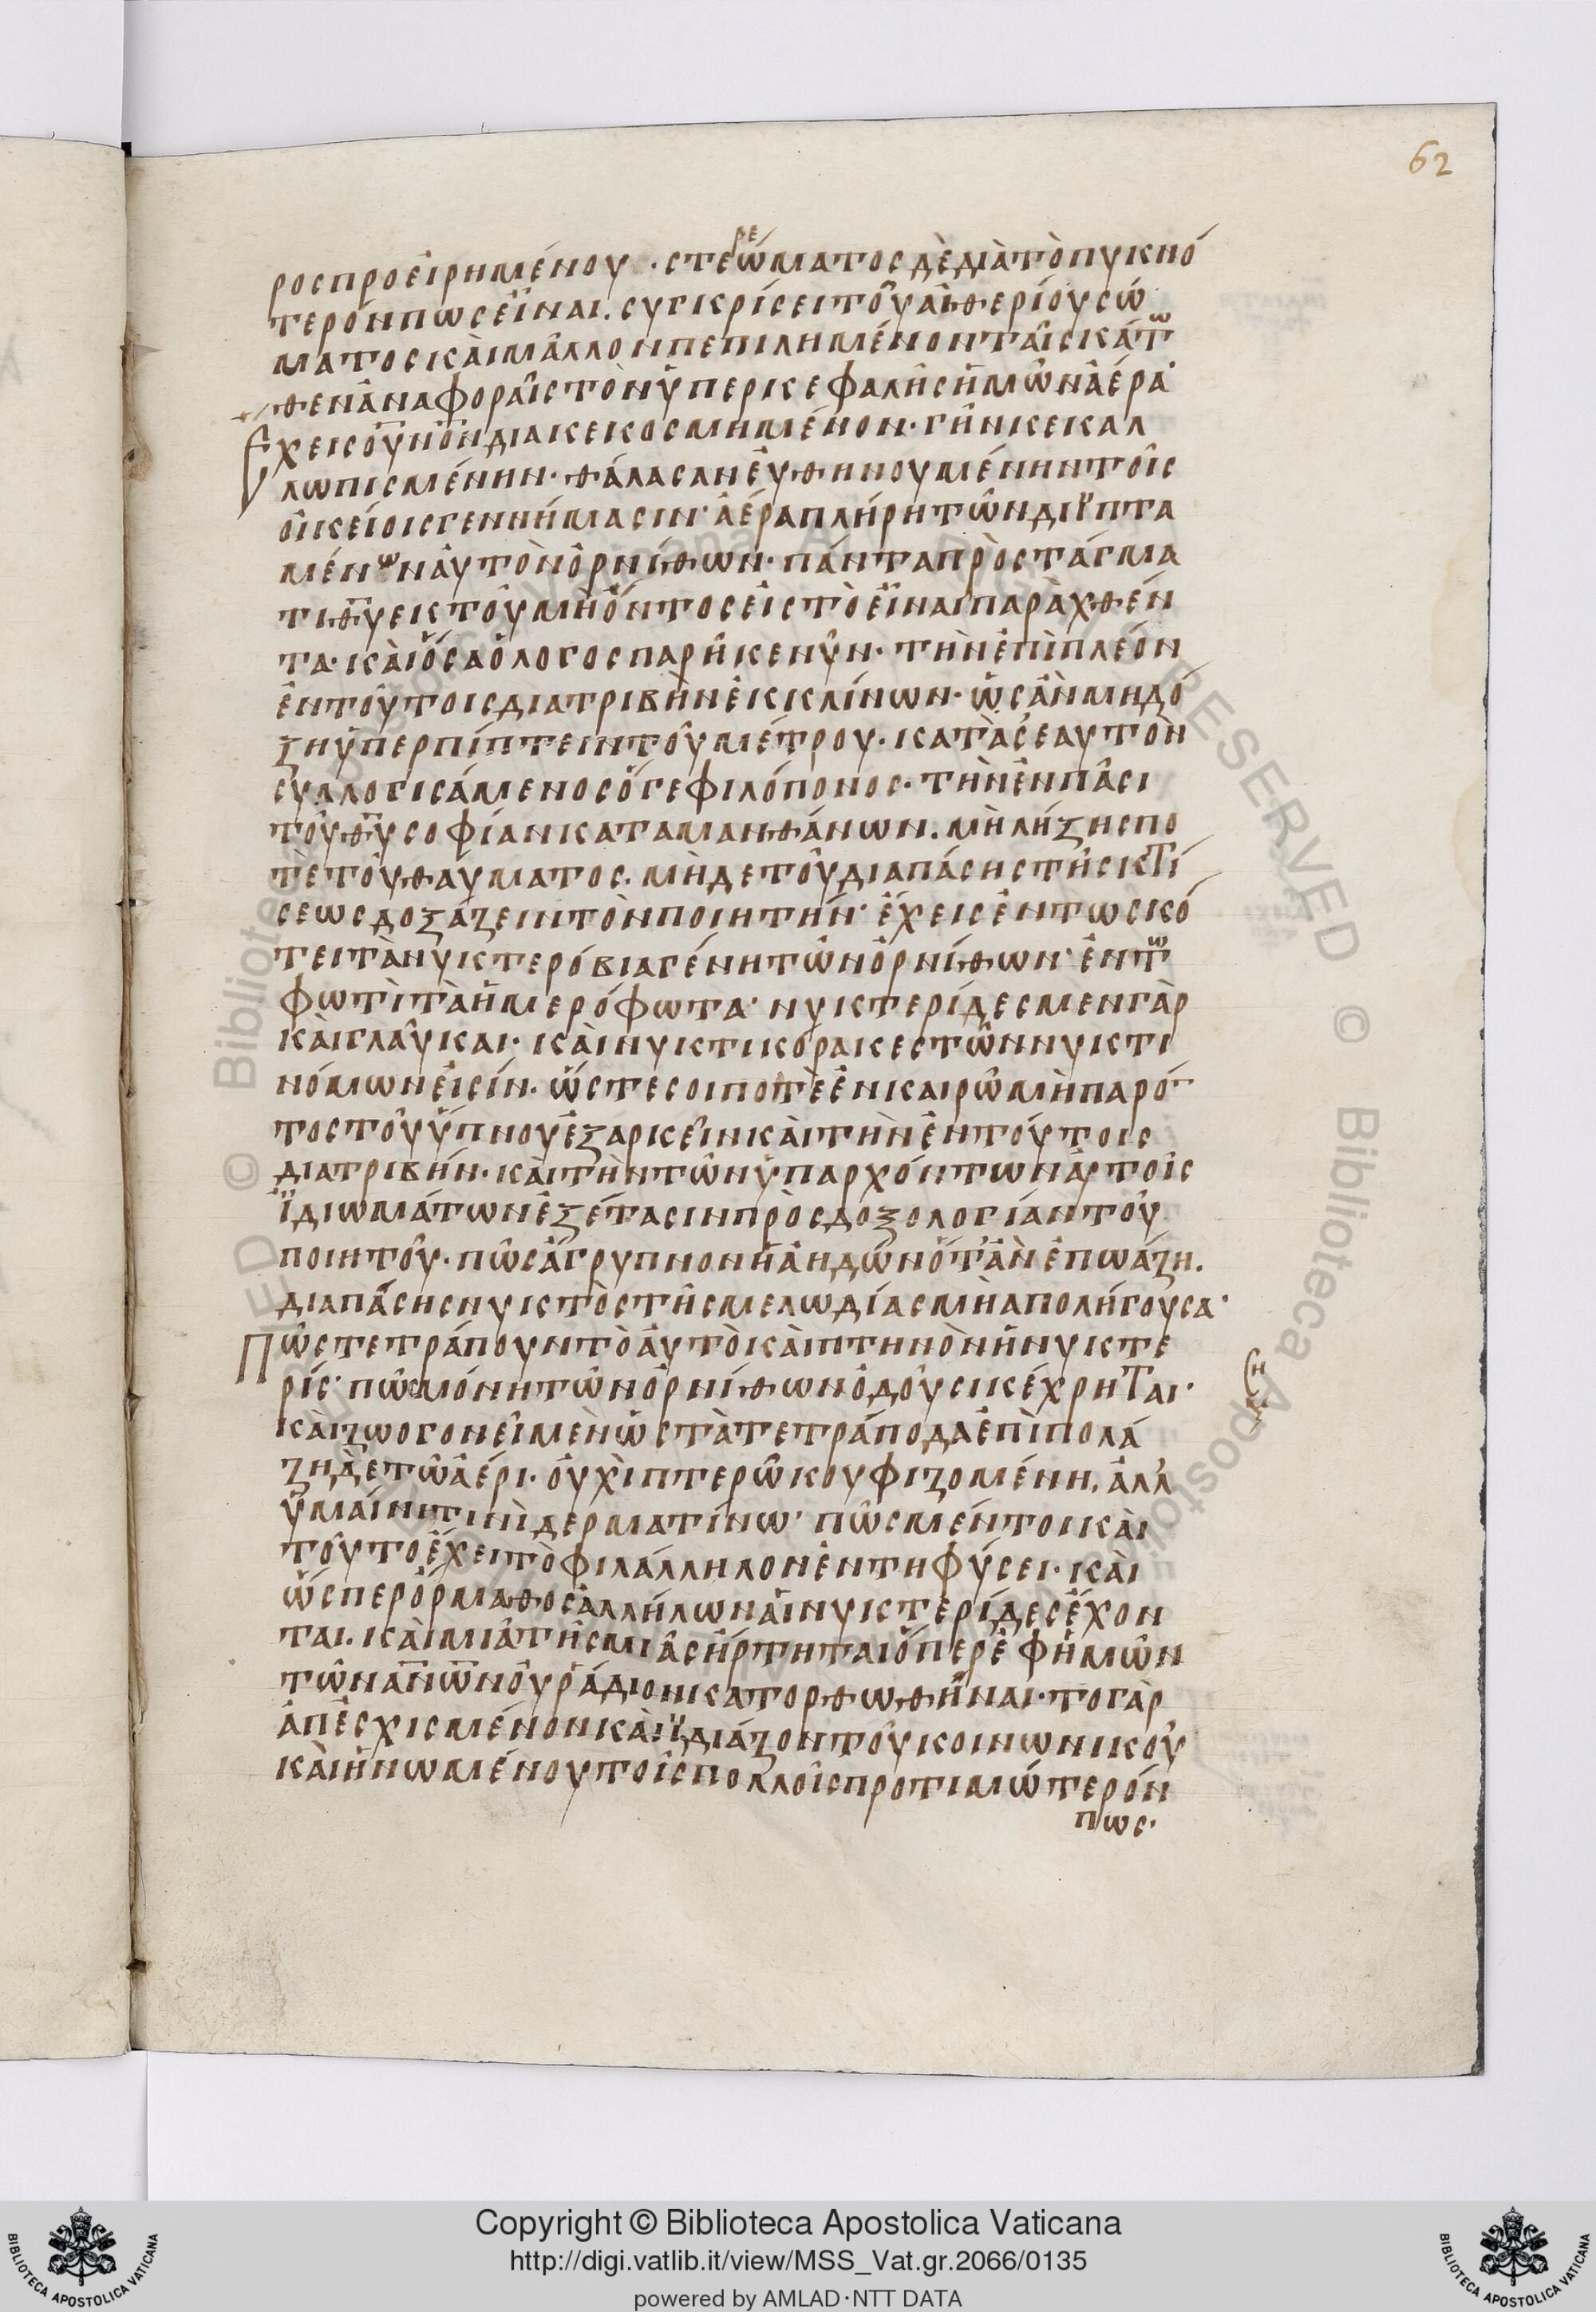 62
ροσπροειρημένου · στερεώματοσ δὲ διὰ τὸ πυκνό
τερόν πωσ εἶναι. συγκρίσει τοῦ αἰθερίου σώ
ματοσ καὶ μᾶλλον πεπιλημένον ταῖσ κάτω
θεν ἀναφοραῖσ τὸν ὑπερ κεφαλῆσ ἡμῶν ἀέρα·
Ἔχεισ οὐ̅ν̅ο̅ν̅ διακεκοσμημένον· γῆν κεκαλ
λωπισμένην· θάλασαν εὐθηνουμένην τοῖσ
οἰκείοισ γεννήμασιν· ἀέρα πλήρη τῶν διϊπτα
μένων αὐτὸν ὀρνίθων· πάντα προστάγμα
τι θ̅υ̅ εκ τοῦ μὴ ὄντοσ εἰσ τὸ εἶναι παραχθέν
τα· καὶ ὅσα ὁ λογοσ παρῆκε νῦν· τὴν ἐπὶ πλεόν
ἐν τούτοισ διατριβὴν ἐκκλίνων· ὡσ ἂν μη δό
ξη ὑπερπίπτειν τοῦ μέτρου· κατὰ σεαυτὸν
συλλογισάμενοσ ὅγε φιλόπονοσ· τὴν ἐν πᾶσι
τοῦ θ̅υ̅ σοφίαν καταμανθάνων. μὴ λήξησ πο
τὲ τοῦ θαυματοσ. μὴδε τοῦ δια πάσησ τῆσ κτί
σεωσ δοξάζειν τὸν ποιητήν· ἔχεισ ἐν τω σκό
τει τὰ νυκτερόβια γένη τῶν ὀρνίθων· ἐν τω
φωτὶ τὰ ἡμερόφωτα· νυκτερίδεσ μεν γὰρ
καὶ γλαῦκαι· καὶ νυκτικόρακεσ τῶν νυκτι
νόμων εἰσίν· ὥστε σοι ποτὲ ἐν καιρῶ μὴ παρό
τοσ τοῦ ὕπνου ἐξαρκεῖν καὶ τὴν ἐν τούτοισ
διατριβήν· καὶ τὴν τῶν ὑπαρχόντων αὐτοῖσ
ἰδιωμάτων ἐξέτασιν πρὸσ δοξολογίαν τοῦ
ποιητοῦ· πῶσ ἄγρυπνον ἡ ἀηδὼν ὅτ' ἂν ἐπωάζη.
διαπάσησ νυκτὸσ τῆσ μελωδίασ μὴ απολήγουσα·
Πῶσ τετράπουν τὸ ἀυτὸ καὶ πτηνὸν ἡ νυκτε
ρίσ· πῶσ μόνη τῶν ὀρνίθων ὀδοῦσι κέχρηται·
καὶ ζωογονεῖ μὲν ὡσ τὰ τετράποδα ἐπὶ πολά
ζη δὲ τῶ ἀέρι· οὐχὶ πτερῶ κουφιζομένη, ἀλλ'
ὑμαίνητινὶ δερματίνω· πῶσ μέντοι καὶ
τοῦτο ἔχει τὸ φιλάλληλον ἐν τη φύσει· καὶ
ὥσπερ ὅρμαθοσ ἀλλήλων ἁι νυκτερίδεσ ἔχον
ται. καὶ μία τῆσ μιᾶσ ἤρτηται ὅπερ ἐφ ἡμῶν
τῶν α̅ν̅ω̅ν̅ οὐ ῥάδιον κατορθωθῆναι· το γὰρ
ἀπεσχισμένον καὶ ἰδιάζον τοῦ κοινωνικοῦ
καὶ ἡνωμένου τοῖσ πολλοῖσ προτιμώτερόν
πωσ·
Copyright © Biblioteca Apostolica Vaticana
http://digi.vatlib.it/view/MSS_Vat.gr.2066/0135
powered by AMLAD·NTT DATA